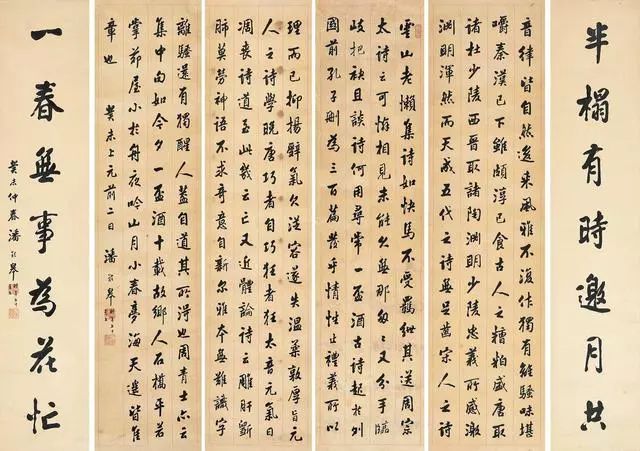 半榻有時邀月共
音律皆自然後來風雅不復作獨有離騷味堪
嚼秦漢已下雖頗淳已食古人之糟粕盛唐取
諸杜少陵西晉取諸陶淵明少陵忠義所感激
淵明渾然而天成五代之詩無足齒宗人之詩
雲山老懶集詩如快馬不受羈紲其送周宗
太詩之可惜相見未能久無那匆匆又分手臨
歧把袂且談詩何用尋常一盃酒古詩起於列
國前孔子刪為三百篇發乎情性止禮義所以
理而已抑揚辭氣欠從容遂失溫柔敦厚旨元
人之詩學晚唐巧者自巧狂者狂太音元氣日
凋喪詩道至此幾云亡又近體論詩云雕肝斵
肺莫勞神語不求奇意自新尔雅本無難識字
離騷還有獨醒人蓋自道其所得也周青士亦云
集中句如今夕一盃酒十載故鄉人石橋平若
掌茆屋小於舟夜吟山月小春夢海天遙皆隹
章也 癸未上元前二日 潘齡皋
一春無事為花忙
癸未仲春潘齡皋